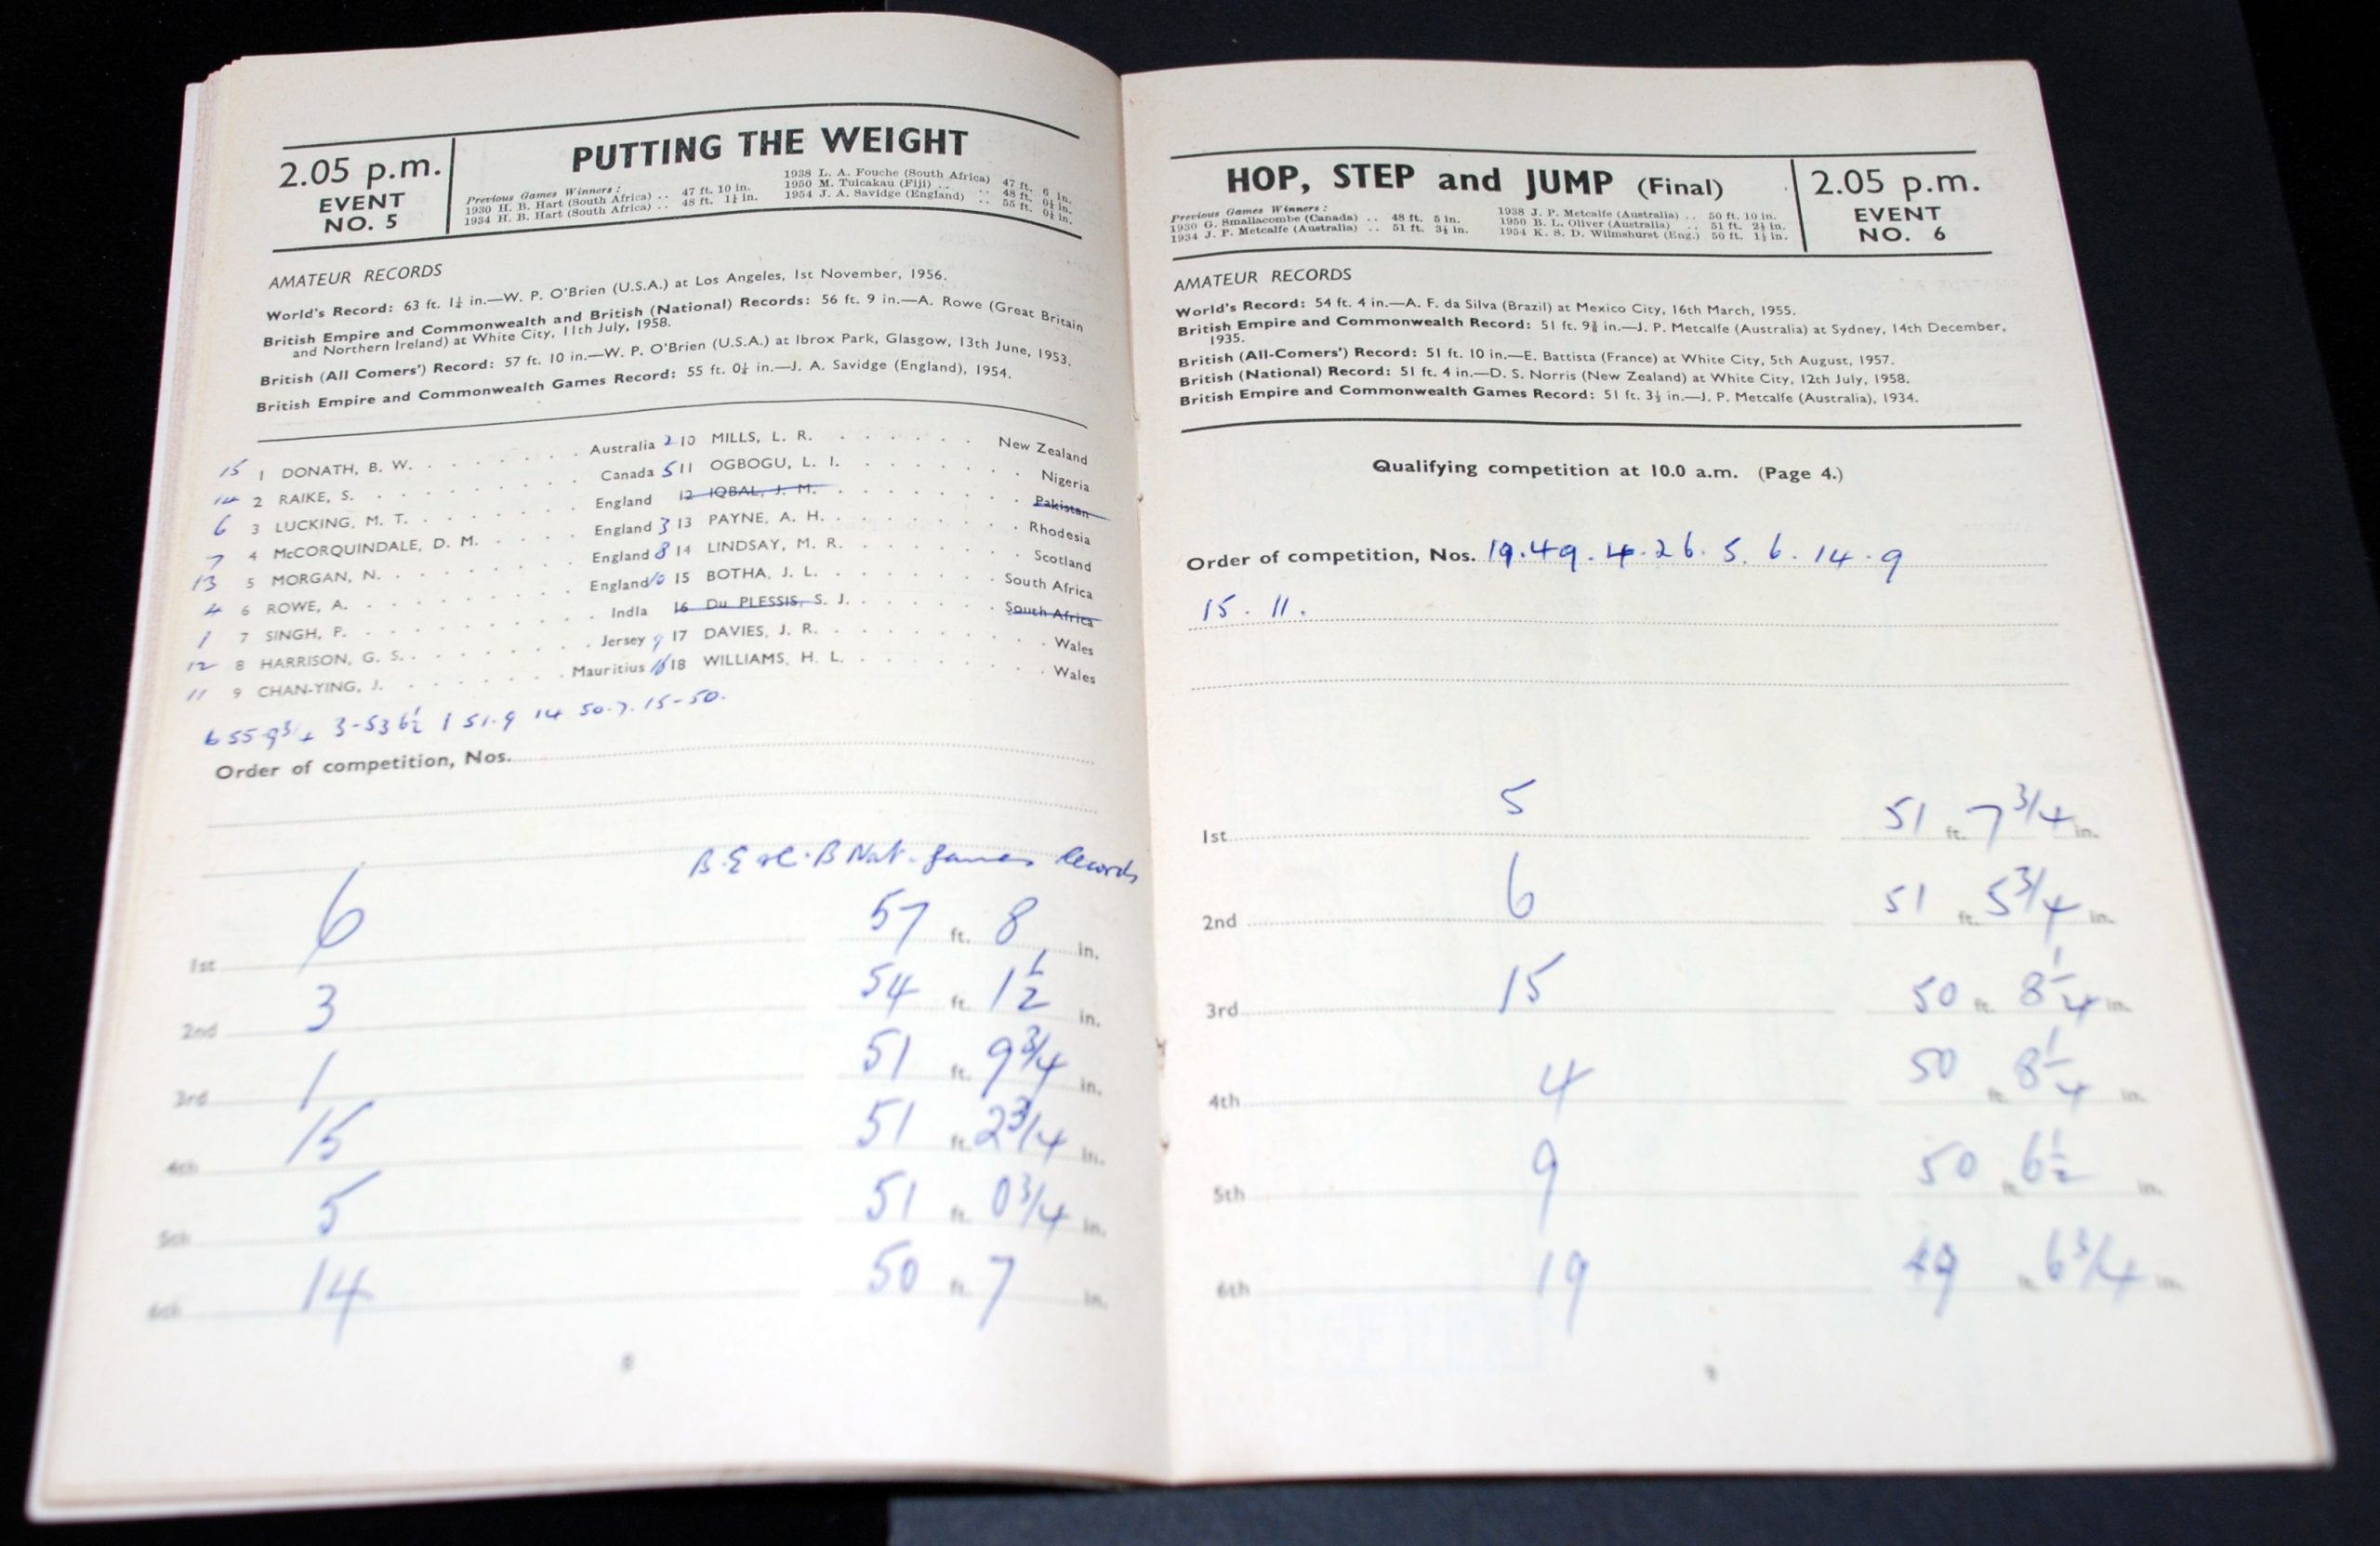 2.05 p.m.
EVENT
NO. 5
PUTTING THE WEIGHT
Previous Games Winners:
1930 H. B. Hart (South Africa) .. 47 ft. 10 in.
1934 H. B. Hart (South Africa) .. 48 ft. 1½ in.
1938 L. A. Fouche (South Africa) 47 ft. 6 in.
1950 M. Tuicakau (Fiji) .. .. 48 ft. 0½ in.
1954 J. A. Savidge (England) .. 55 ft. 0¼ in.
AMATEUR RECORDS
World's Record: 63 ft. 1¼ in.—W. P. O'Brien (U.S.A.) at Los Angeles, 1st November, 1956.
British Empire and Commonwealth and British (National) Records: 56 ft. 9 in.—A. Rowe (Great Britain
and Northern Ireland) at White City, 11th July, 1958.
British (All Comers') Record: 57 ft. 10 in.—W. P. O'Brien (U.S.A.) at Ibrox Park, Glasgow, 13th June, 1953.
British Empire and Commonwealth Games Record: 55 ft. 0¼ in.—J. A. Savidge (England), 1954.
15 1 DONATH, B. W. . . . . . . Australia
14 2 RAIKE, S. . . . . . . . Canada
6 3 LUCKING, M. T. . . . . . . England
7 4 McCORQUINDALE, D. M. . . . . England
13 5 MORGAN, N. . . . . . . . England
4 6 ROWE, A. . . . . . . . . England
1 7 SINGH, P. . . . . . . . . India
12 8 HARRISON, G. S. . . . . . . Jersey
11 9 CHAN-YING, J. . . . . . . Mauritius
2 10 MILLS, L. R. . . . . . . New Zealand
5 11 OGBOGU, L. I. . . . . . . Nigeria
12 IQBAL, J. M. . . . . . . . Pakistan
3 13 PAYNE, A. H. . . . . . . . Rhodesia
8 14 LINDSAY, M. R. . . . . . . Scotland
10 15 BOTHA, J. L. . . . . . . South Africa
16 Du PLESSIS, S. J. . . . . . South Africa
9 17 DAVIES, J. R. . . . . . . . Wales
16 18 WILLIAMS, H. L. . . . . . . Wales
6 55-9¾ 3-53 6½ 1 51.9 14 50.7. 15-50.
Order of competition, Nos.
B.E &C. B Nat. Games Records
1st 6 57 ft. 8 in.
2nd 3 54 ft. 1½ in.
3rd 1 51 ft. 9¾ in.
4th 15 51 ft. 2¾ in.
5th 5 51 ft. 0¾ in.
6th 14 50 ft. 7 in.
8
HOP, STEP and JUMP (Final)
2.05 p.m.
EVENT
NO. 6
Previous Games Winners:
1930 G. Smallacombe (Canada) .. 48 ft. 5 in.
1934 J. P. Metcalfe (Australia) .. 51 ft. 3½ in.
1938 J. P. Metcalfe (Australia) .. 50 ft. 10 in.
1950 B. L. Oliver (Australia) .. 51 ft. 2½ in.
1954 K. S. D. Wilmshurst (Eng.) 50 ft. 1½ in.
AMATEUR RECORDS
World's Record: 54 ft. 4 in.—A. F. da Silva (Brazil) at Mexico City, 16th March, 1955.
British Empire and Commonwealth Record: 51 ft. 9⅜ in.—J. P. Metcalfe (Australia) at Sydney, 14th December,
1935.
British (All-Comers') Record: 51 ft. 10 in.—E. Battista (France) at White City, 5th August, 1957.
British (National) Record: 51 ft. 4 in.—D. S. Norris (New Zealand) at White City, 12th July, 1958.
British Empire and Commonwealth Games Record: 51 ft. 3½ in.—J. P. Metcalfe (Australia), 1934.
Qualifying competition at 10.0 a.m. (Page 4.)
Order of competition, Nos. 19.49.4.26.5.6.14.9
15.11.
1st 5 51 ft. 7¾ in.
2nd 6 51 ft. 5¾ in.
3rd 15 50 ft. 8¼ in.
4th 4 50 ft. 8¼ in.
5th 9 50 ft. 6½ in.
6th 19 49 ft. 6¾ in.
9